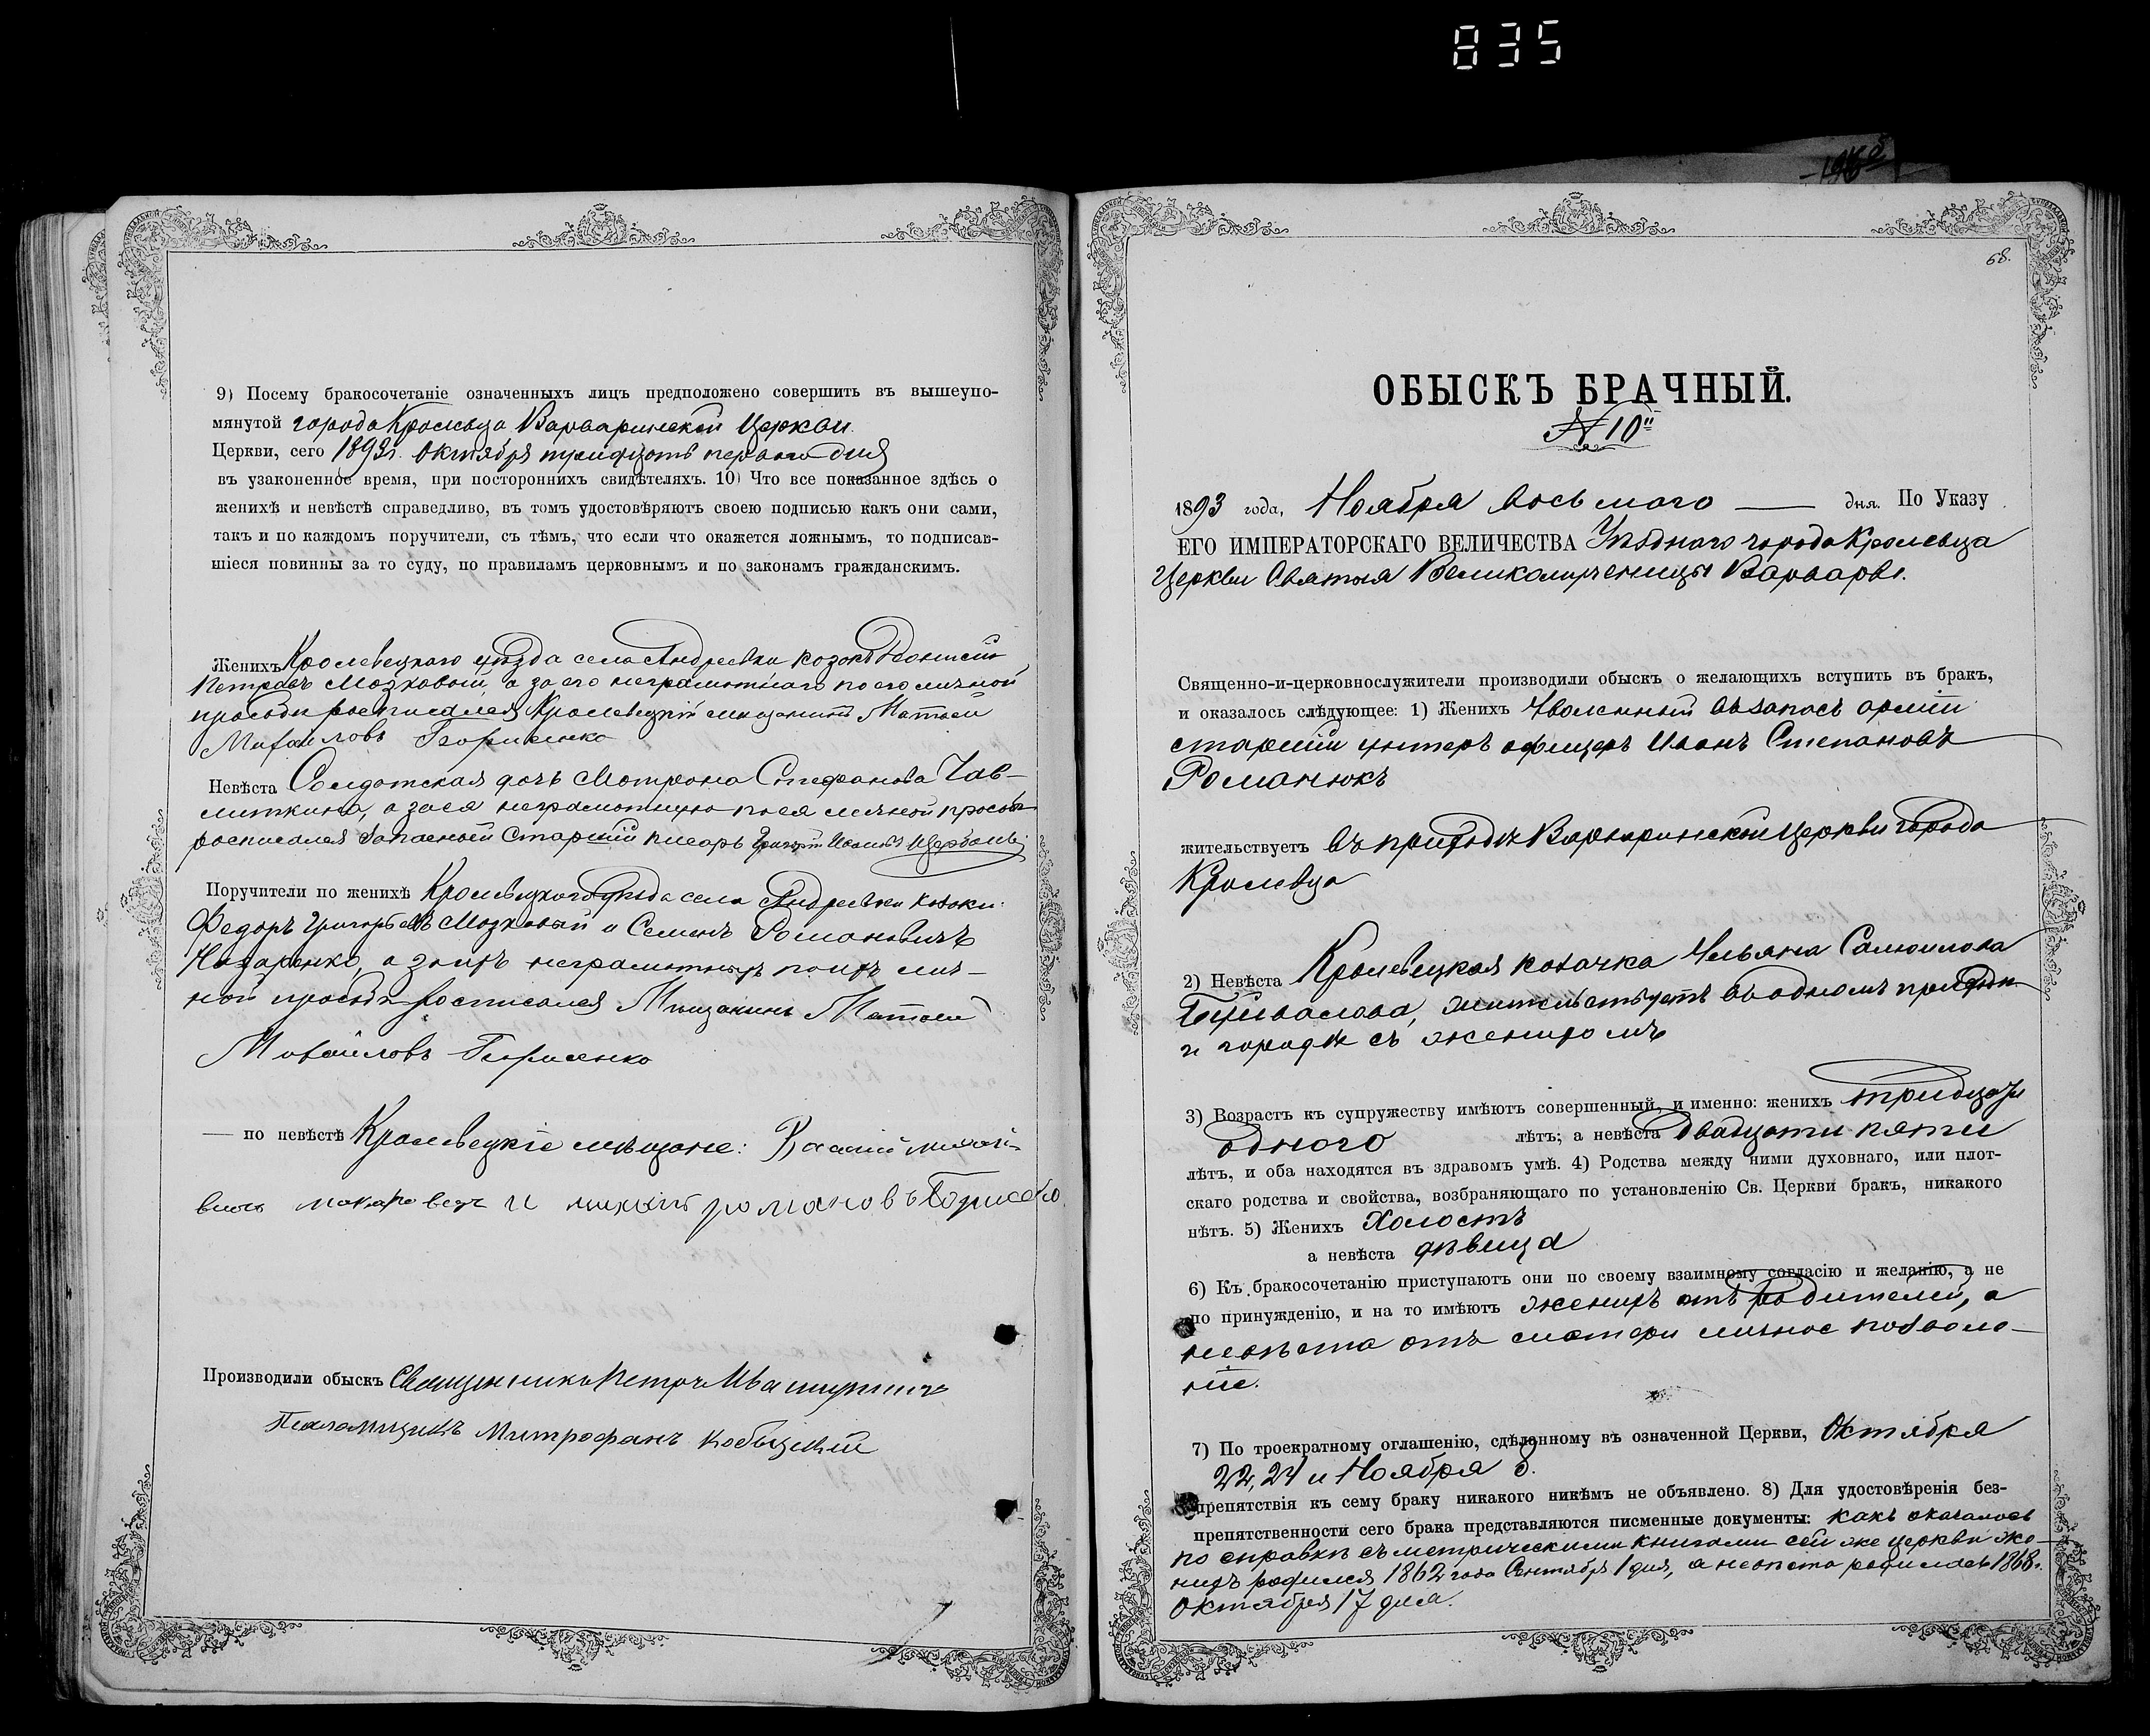 835
9) Посему бракосочетаніе означенныхъ лицъ предположено совершить въ вышеупо-
мянутой города Кролевца Варваринской Церкви
Церкви, сего 1893 г. Октября тридцать перваго дня
въ узаконенное время, при постороннихъ свидѣтеляхъ. 10) Что все показанное здѣсь о
женихѣ и невѣстѣ справедливо, въ томъ удостовѣряютъ своею подписью какъ они сами,
такъ и по каждомъ поручители, съ тѣмъ, что если что окажется ложнымъ, то подписав-
шіеся повинны за то суду, по правиламъ церковнымъ и по законамъ гражданскимъ.
Женихъ Кролевецкаго уѣзда села Андреевки козакъ
Петровъ Мозховой, а за его неграмотнаго по его личной
просьбѣ росписался Кролевецкій мещанинъ Матвей
Михайловъ Борисенко
Невѣста Солдатская дочь Мотрона Стефанова
а за ея неграмотную по ея личной просьбѣ
росписался Запасный Старшій писарь Григорій Щербань
Поручители по женихѣ Кролевецкого уѣзда села Андреевки козаки:
Федоръ Григорьевъ Мозховый и Семенъ Романовичъ
Назаренко, а за ихъ неграмотныхъ по ихъ лич-
ной просьбѣ росписался Мѣщанинъ Матвей
Михайловъ Борисенко
— по невѣстѣ Кролевецкіе мѣщане: Василій
и романовъ Борисенко
Производили обыскъ Священникъ Петръ
Псаломщикъ Митрофанъ
1960
68.
ОБЫСКЪ БРАЧНЫЙ.
№ 10й
1893 года, Ноября восьмого — дня. По Указу
ЕГО ИМПЕРАТОРСКАГО ВЕЛИЧЕСТВА Уѣзднаго города Кролевца
Церкви Святыя Великомученицы Варвары.
Священно-и-церковнослужители производили обыскъ о желающихъ вступить въ бракъ,
и оказалось слѣдующее: 1) Женихъ Уволенный въ запасъ арміи
старшій унтеръ офицеръ Иванъ Степановъ
Романюкъ
жительствуетъ въ приходѣ Варваринской Церкви города
Кролевца
2) Невѣста Кролевецкая козачка Ульяна Самоилова
жительствуетъ въ одномъ приходѣ
и городѣ съ женихомъ
3) Возрастъ къ супружеству имѣютъ совершенный, и именно: женихъ тридцати
одного лѣтъ; а невѣста двадцати пяти
лѣтъ, и оба находятся въ здравомъ умѣ. 4) Родства между ними духовнаго, или плот-
скаго родства и свойства, возбраняющаго по установленію Св. Церкви бракъ, никакого
нѣтъ. 5) Женихъ Холостъ
а невѣста дѣвица
6) Къ бракосочетанію приступаютъ они по своему взаимному согласію и желанію, а не
по принужденію, и на то имѣютъ женихъ отъ родителей, а
невѣста отъ матери личное позволе-
ніе.
7) По троекратному оглашенію, сдѣланному въ означенной Церкви, Октября
22, 24 и Ноября 8.
препятствія къ сему браку никакого никѣмъ не объявлено. 8) Для удостовѣренія без-
препятственности сего брака представляются писменные документы: какъ оказалось
по справкѣ съ метрическими книгами сей же церкви же-
нихъ родился 1862 года Сентября 1 дня, а невѣста родилась 1868.
Октября 17 дня.